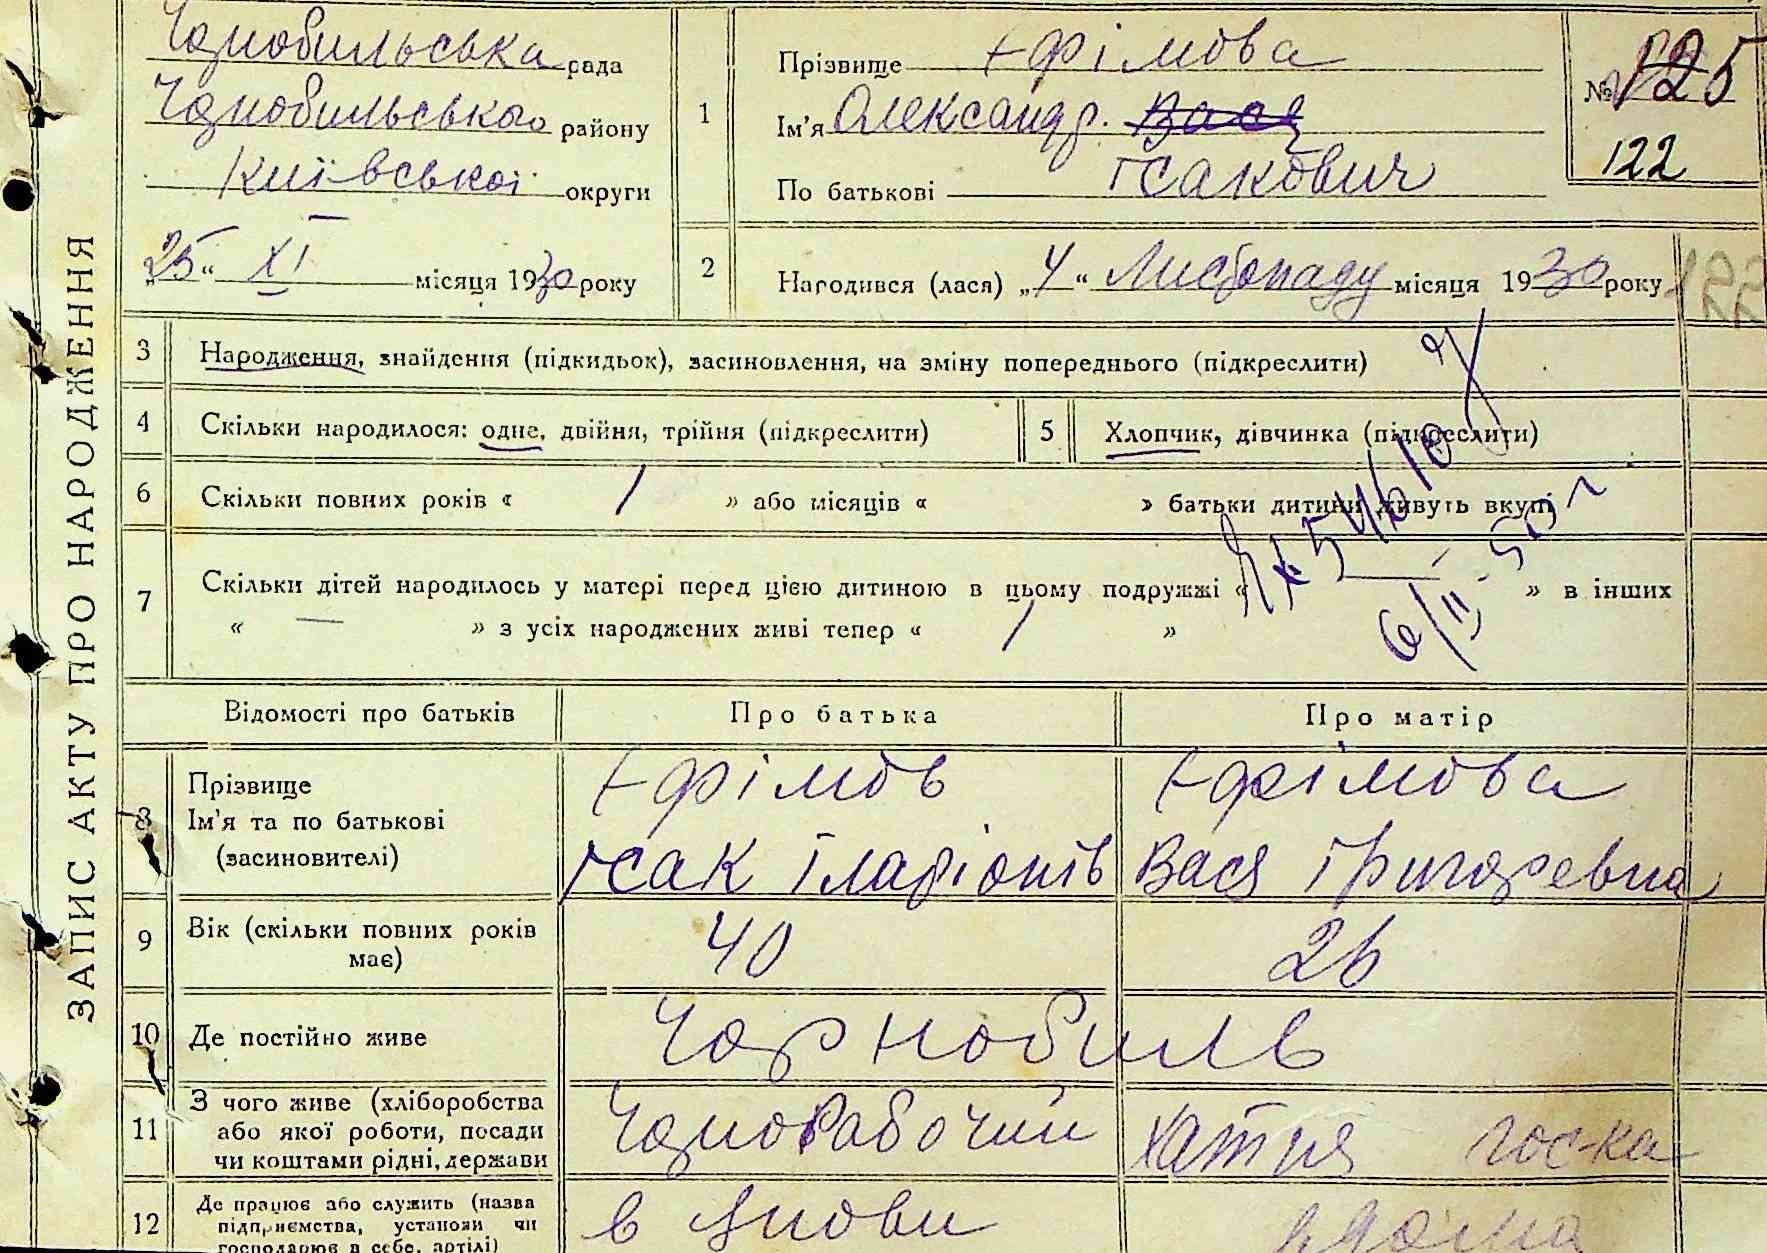 ЗАПИС АКТУ ПРО НАРОДЖЕННЯ
Чорнобильська рада
Чорнобильського району
Київської округи
„25“ XI місяця 1930 року
1
Прізвище Єфімова
Ім'я Олександр. Вася
По батькові Ісакович
№ 125
122
2
Народився (лася) „4“ Листопаду місяця 1930 року
122
3 Народження, знайдення (підкидьок), засиновлення, на зміну попереднього (підкреслити)
4 Скільки народилося: одне, двійня, трійня (підкреслити)
5 Хлопчик, дівчинка (підкреслити)
6 Скільки повних років « 1 » або місяців « » батьки дитини живуть вкупі
7 Скільки дітей народилось у матері перед цією дитиною в цьому подружжі « — » в інших
« — » з усіх народжених живі тепер « 1 »
6/II-50 г
Відомості про батьків Про батька Про матір
8 Прізвище Єфімов Єфімова
Ім'я та по батькові Ісак Іларіонів Вася Григоревна
(засиновителі)
9 Вік (скільки повних років має) 40 26
10 Де постійно живе Чорнобиль
11 З чого живе (хліборобства Чорноrабочий Хатня гос-ка
або якої роботи, посади
чи коштами рідні, держави
12 Де працює або служить (назва в вдома
підприємства, установи чи
господарює в себе, артілі)